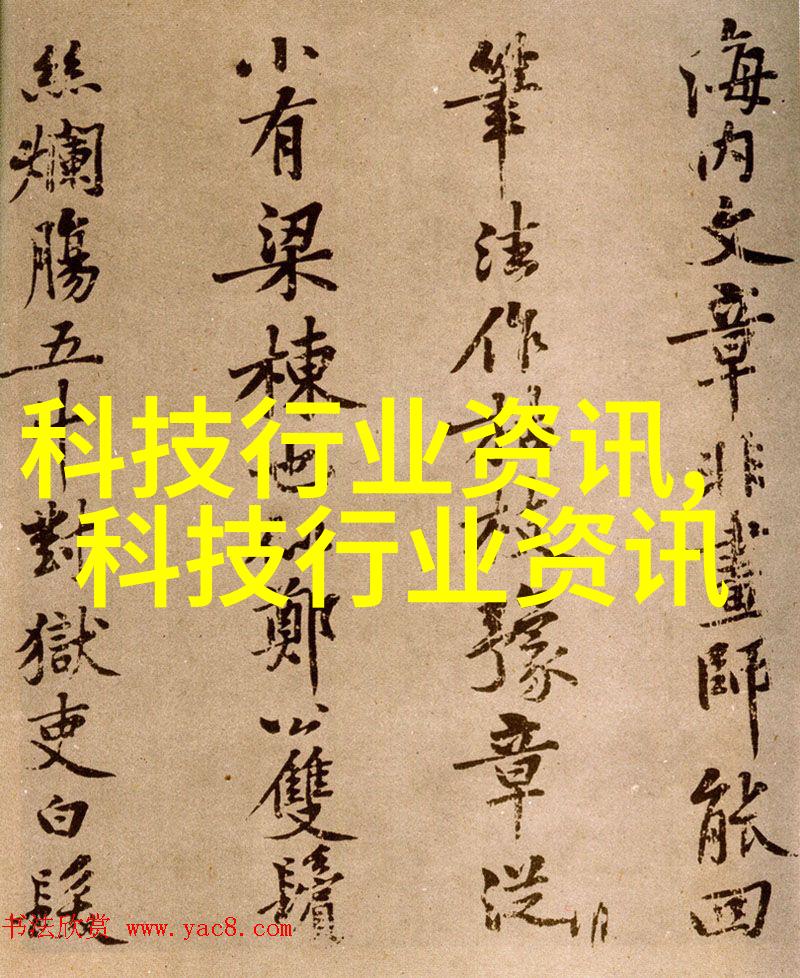 海内文章非畫師能回
筆法作枝豫章從
小有梁棟也鄭公雙鬢
絲爛腸五斗對獄吏白髮
科技行业资讯,
科技行业资讯
书法欣赏 www.yac8.com